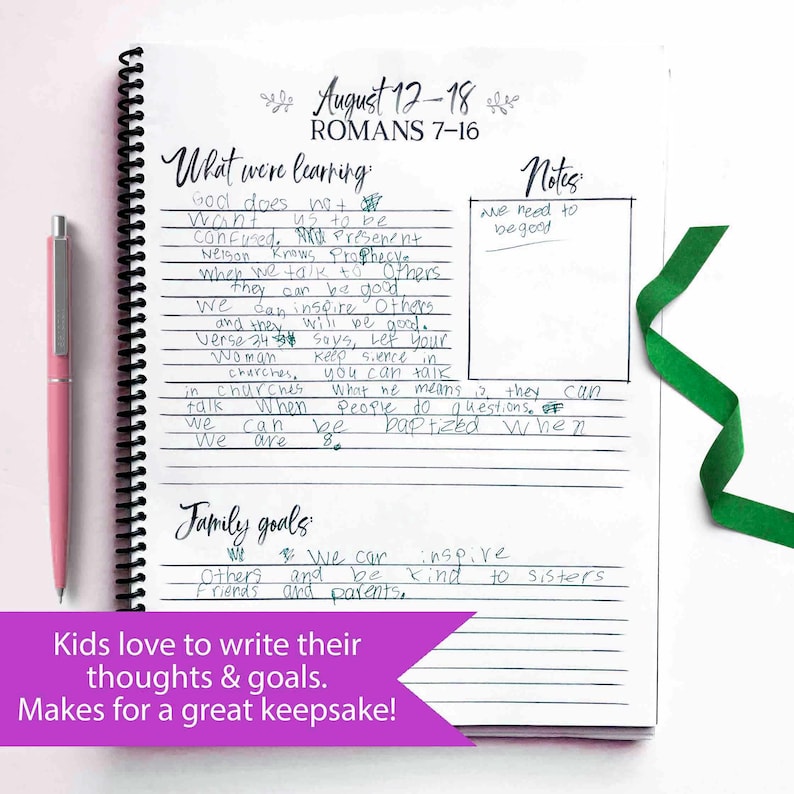 August 12-18
ROMANS 7-16
What we're learning:
God does not
Want us to be
confused. Presenent
Nelson Knows Prophecy.
When we talk to Others
they can be good
We can inspire Others
and they will be good.
Verse 34 says, Let Your
Woman Keep sience in
churches. you can talk
in churches What he means is, they can
talk When People do questions.
We can be baptized When
We are 8.
Notes:
We need to
be good
Family goals:
We can inspire
Others and be kind to sisters
Friends and parents.
Kids love to write their
thoughts & goals.
Makes for a great keepsake!